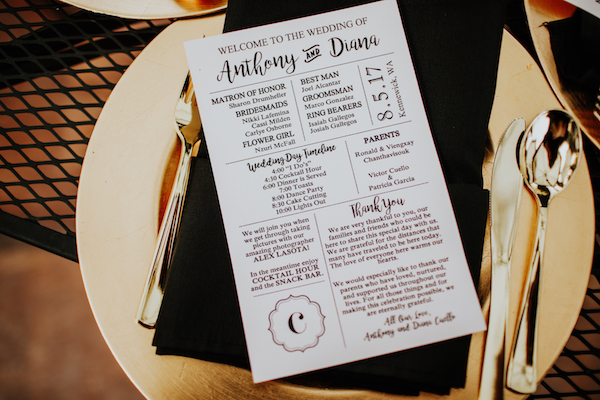 WELCOME TO THE WEDDING OF
Anthony AND Diana
MATRON OF HONOR
Sharon Drumheller
BRIDESMAIDS
Nikki Lafemina
Cassi Milden
Carlye Osborne
FLOWER GIRL
Nzuri McFall
BEST MAN
Joel Alcantar
GROOMSMAN
Marco Gonzalez
RING BEARERS
Isaiah Gallegos
Josiah Gallegos
8.5.17
Kennewick, WA
Wedding Day Timeline
4:00 "I Do's"
4:30 Cocktail Hour
6:00 Dinner is Served
7:00 Toasts
8:00 Dance Party
8:30 Cake Cutting
10:00 Lights Out
PARENTS
Ronald & Viengxay
Chanthavisouk
Victor Cuello
&
Patricia Garcia
We will join you when
we get through taking
pictures with our
amazing photographer
ALEX LASOTA!
In the meantime enjoy
COCKTAIL HOUR
and the SNACK BAR.
C
Thank You
We are very thankful to you, our
families and friends who could be
here to share this special day with us.
We are grateful for the distances that
many have traveled to be here today.
The love of everyone here warms our
hearts.
We would especially like to thank our
parents who have loved, nurtured,
and supported us throughout our
lives. For all those things and for
making this celebration possible, we
are eternally grateful.
All Our Love,
Anthony and Diana Cuello